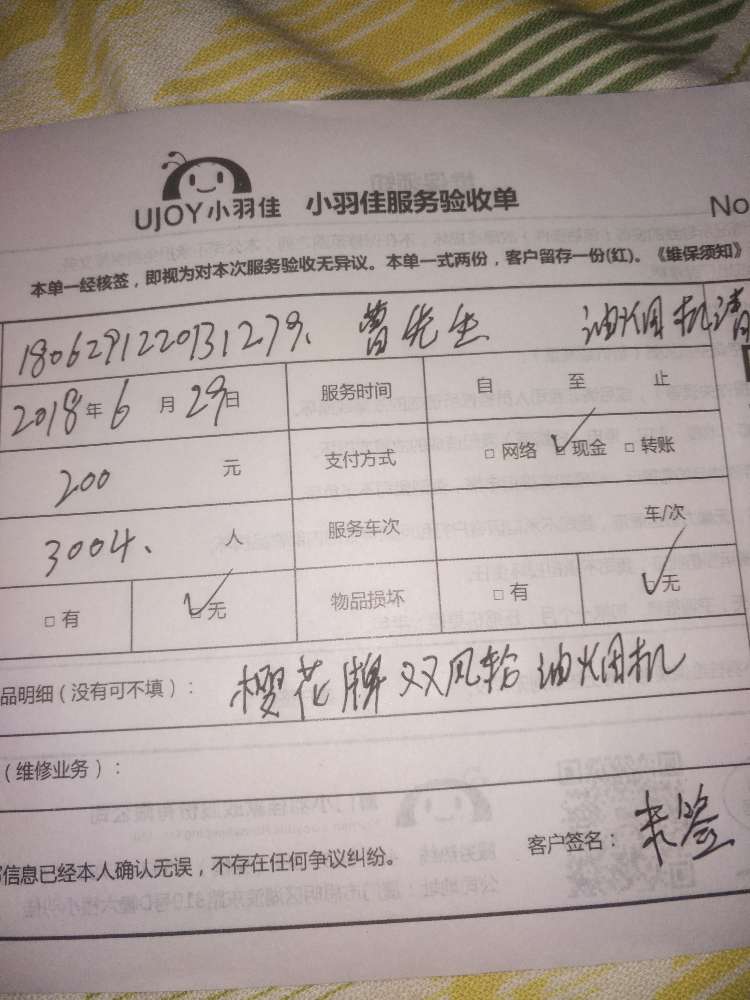 UJOY小羽佳 小羽佳服务验收单
No
本单一经核签，即视为对本次服务验收无异议。本单一式两份，客户留存一份(红)。《维保须知》
180629122031279、 曹先生 油烟机清
2018年6月29日 服务时间 自 至 止
200 元 支付方式 □ 网络 □ 现金 □ 转账
3004、 人 服务车次 车/次
□ 有 □ 无 物品损坏 □ 有 □ 无
品明细（没有可不填）： 樱花牌双风轮油烟机
（维修业务）：
信息已经本人确认无误，不存在任何争议纠纷。 客户签名：未签